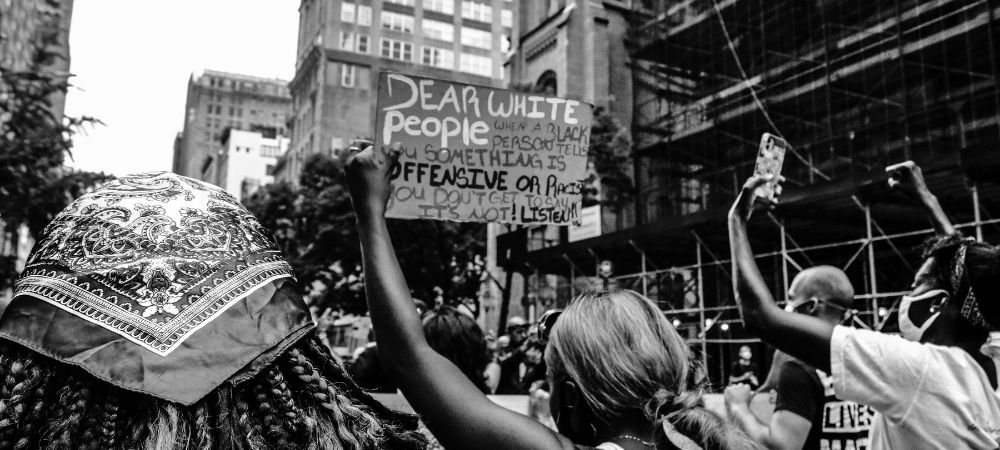 DEAR WHITE
PEOPLE WHEN A BLACK
PERSON TELLS
YOU SOMETHING IS
OFFENSIVE OR RACIST
YOU DON'T GET TO SAY
IT'S NOT! LISTEN!!
LIVES